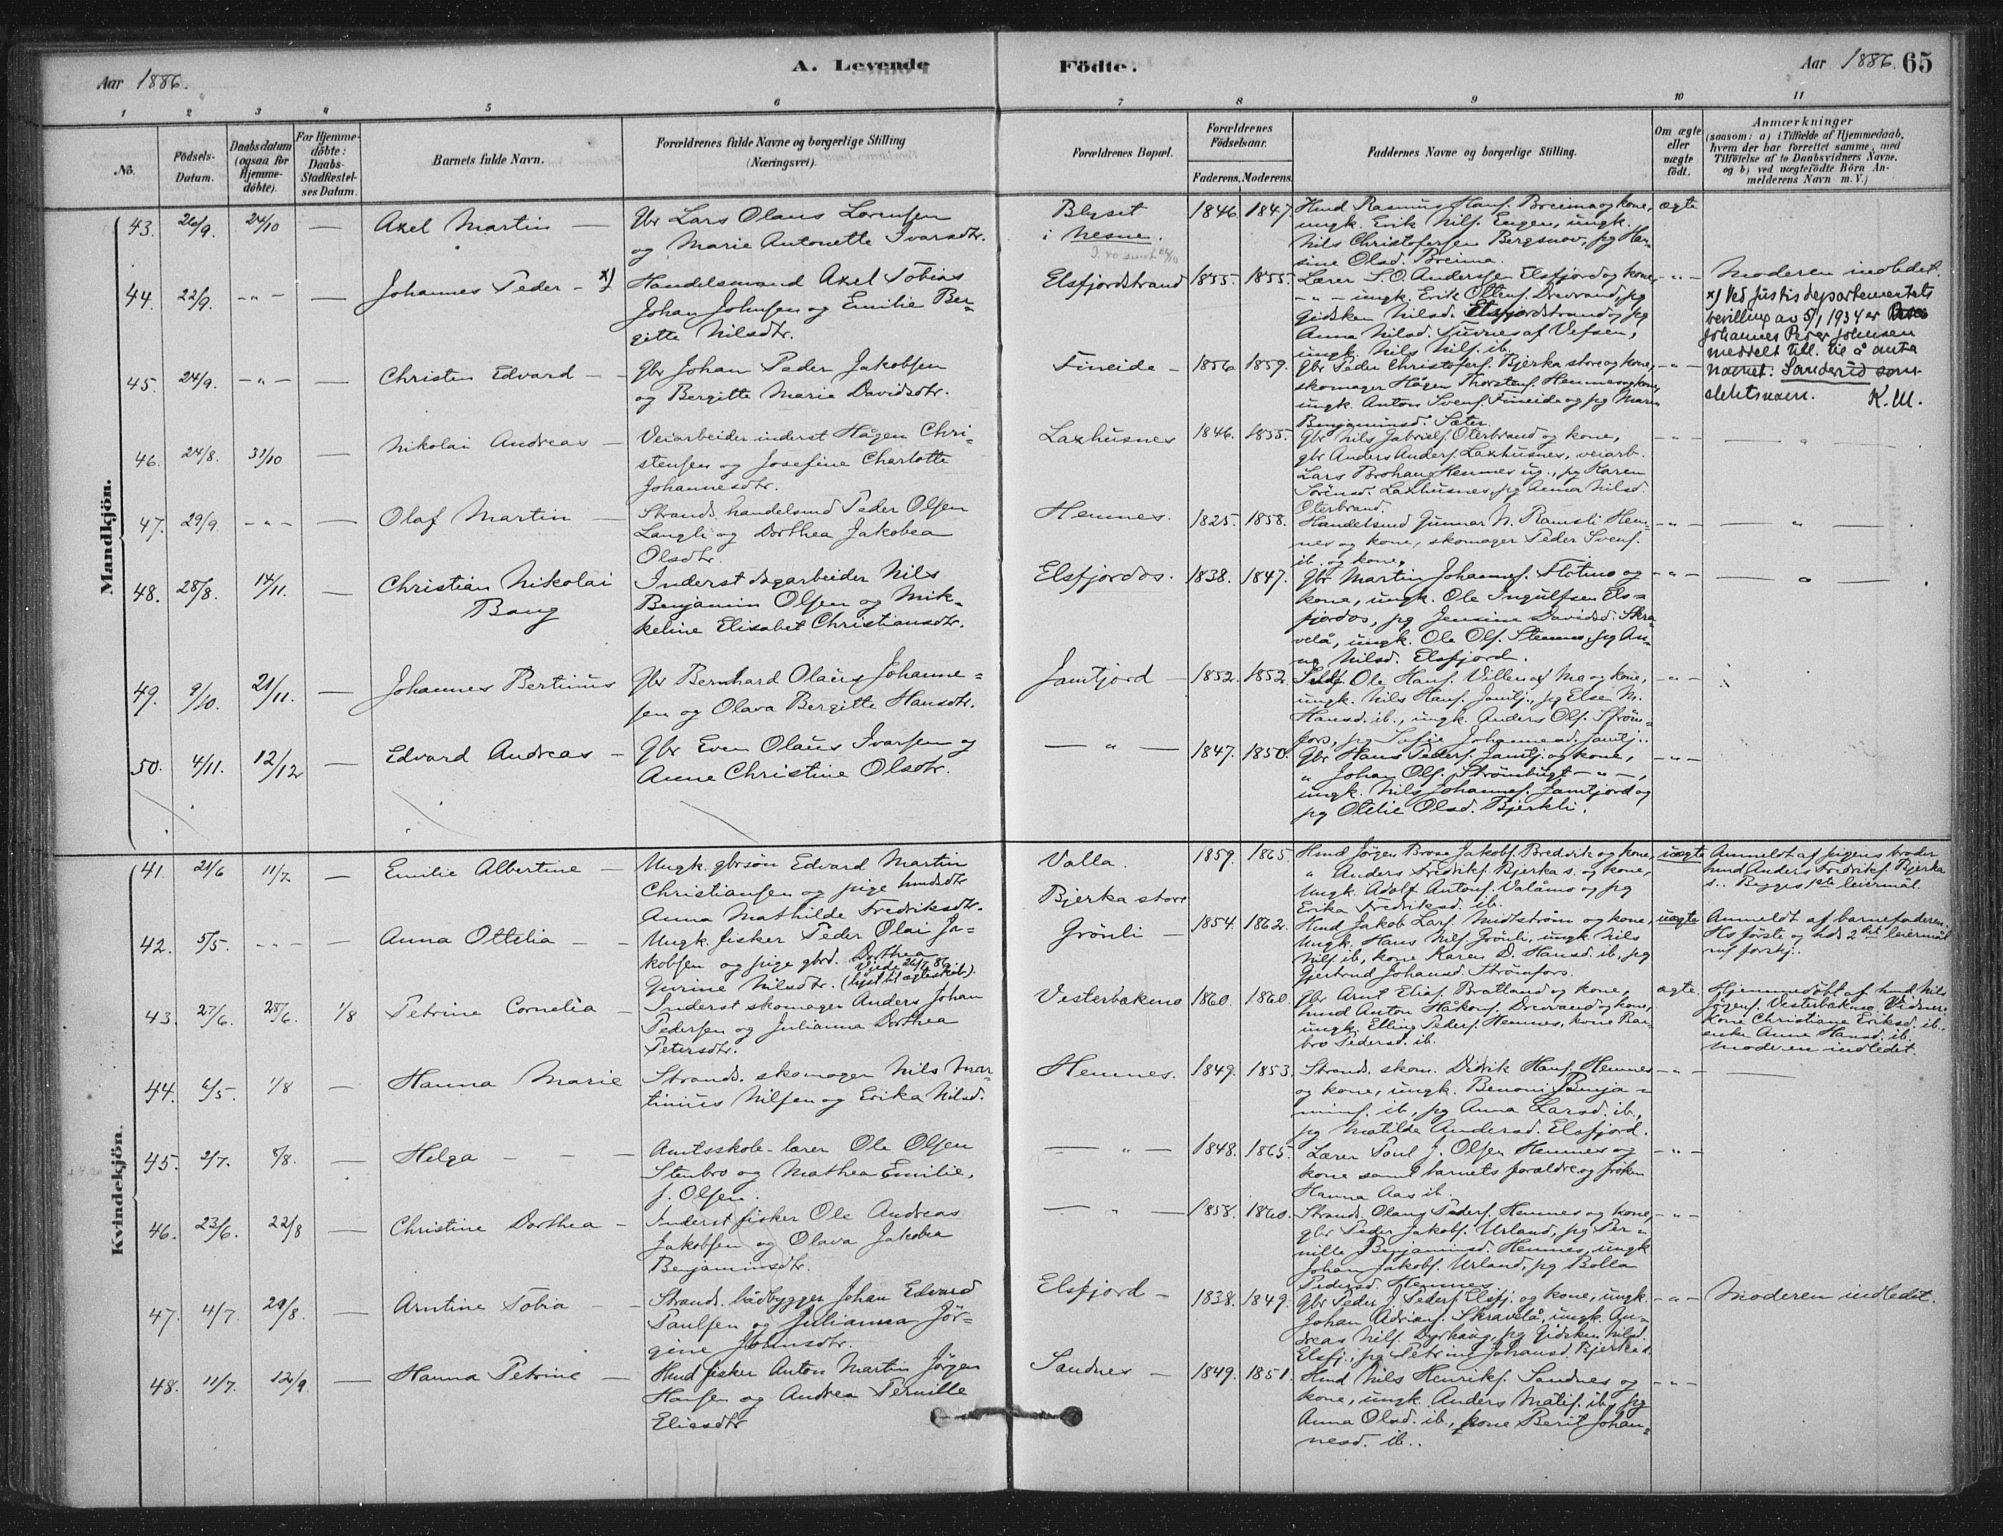 Aar 1886.
A. Levende
Födte.
Aar 1886. 65
1 2 3 4 5 6 7 8 9 10 11
No.
Födsels-Datum.
Daabsdatum (ogsaa for Hjemme-döbte).
For Hjemme-döbte: Daabs-Stadfæstel-ses Datum.
Barnets fulde Navn.
Forældrenes fulde Navne og borgerlige Stilling (Næringsvei).
Forældrenes Bopæl.
Forældrenes Födselsaar.
Faderens. Moderens.
Faddernes Navne og borgerlige Stilling.
Om ægte eller uægte födt.
Anmærkninger
(saasom: a) i Tilfælde af Hjemmedaab, hvem der har forrettet samme, med Tilföielse af to Daabsvidners Navne. og b) ved uægtefödte Börn Anmelderens Navn m. V.)
Mandkjön.
43. 26/9. 24/10 — Axel Martin —
Gbr Lars Olaus Lorensen
og Marie Antonette Ivarsdtr.
i Nesne.
1846. 1847.
ungk. Erik Nils. Engen, ungk.
Nils Christofersen
sine Olsd. Breima.
ægte
44. 22/9. -"- — Johannes Peder - x)
Handelsmand Axel Tobias
Johan Johnsen og Emilie Ber-
gitte Nilsdtr.
Elsfjordstrand
1855. 1855.
Lærer S. O. Anderssen Elsfjord og kone,
Anna Nilsd. af Vefsen,
ungk. Nils Nils. ib.
-"-
Moderen indledet.
x) Ved Justisdepartementets
bevilling av 5/1 1934 er
Johannes Peder Johnsen
meddelt till. til å anta
navnet: Sanderud som
slektsnavn. K.M.
45. 24/9. -"- — Christen Edvard -
Gbr Johan Peder Jakobsen
og Bergitte Marie Davidsdtr.
Fineide -
1856 1859.
Gbr Peder Christofers. Bjerka store og kone,
skomager Hågen Thorstens. Hemnes og kone,
ungk. Anton Svens. Fineide og pg Maren
Benjaminsd. Sæter.
-"-
46. 24/8. 31/10 — Nikolai Andreas -
Veiarbeider inderst Hågen Chri-
stensen og Josefine Charlotte
Johannesdtr.
Laxhusnes
1846. 1855.
Gbr Nils Gabriels. Oterbrand og kone,
gbr Anders Anders. Laxhusnes, veiarb.
Lars Hemnes pg Karen
Sörensd. Laxhusnes, pg Anna Nilsd.
Oterbrand.
-"-
47. 29/9. -"- — Olaf Martin -
Strands. handelsmd Peder Olsen
Langli og Dorthea Jakobea
Olsdtr.
Hemnes.
1825. 1858.
Handelsmd Gunnar N. Ramsli Hem-
nes og kone, skomager Peder Svens.
ib. og kone,
-"-
48. 28/8. 14/11. — Christian Nikolai
Bang
Inderst dagarbeider Nils
Benjamin Olsen og Mik-
keline Elisabet Christiansdtr.
Elsfjordos.
1838. 1847.
Gbr Martin Johannes. og
kone, ungk. Ole Ingulfsen Els-
fjordos, pg Jensine Davidsd. Skra-
velå, ungk. Ole Ols. pg An-
na Nilsd. Elsfjord.
-"-
49. 9/10. 21/11. — Johannes Bertinus
Gbr Bernhard Olaus Johanne-
sen og Olava Bergitte Hansdtr.
Jamtjord -
1852. 1852.
Ole Hans. og kone,
ungk. Nils Hans. Jamtj., pg Else M.
Hansd. ib., ungk. Anders Ols. Ström-
fors, pg Sofie Johannesd. Jamtj.
-"-
50. 4/11. 12/12 — Edvard Andreas -
Gbr Even Olaus Ivarsen og
Anne Christine Olsdtr.
— " —
1847. 1850.
Gbr Hans Peders. Jamtj. og kone,
" Johan Ols. Strömbugt -"-,
ungk. Nils Johannes. Jamtjord og
pg Otilie Olsd. Bjerkli.
-"-
Kvindekjön.
41. 21/6 11/7 — Emilie Albertine -
Ungk. gbrsön Edvard Martin
Christiansen og pige husmdtr
Anna Mathilde Fredriksdtr.
Valla.
Bjerka store
1859. 1865.
Hmd Jörgen Jakobs. Bredvik og kone,
" Anders Fredriks. Bjerka s. og kone,
Ungk. Adolf Antons. Valåmo og pg
Erika Fredriksd. ib.
uægte
Anmeldt af pigens broder
hmd Anders Fredriks. Bjerka
s. Begges 1ste leiermål.
42. 5/5. -"- — Anna Ottilia -
Ungk. fisker Peder Olai Ja-
kobsen og pige gbrd. Dorthea
Gurine Nilsdtr. (lyst til ægteskab).
Grönli -
1854. 1862.
Hmd Jakob Lars. Midtström og kone,
Ungk. Hans Nils. Grönli, ungk. Nils
Nils. ib, kone Karen D. Hansd. ib, pg
Gjertrud Johansd. Strömfors.
uægte
Anmeldt af barnefaderen.
Hs förste og hds 2det leiermål
43. 27/6. 28/6. 1/8 Petrine Cornelia -
Inderst skomager Anders Johan
Pedersen og Julianna Dorthea
Petersdtr.
Vesterbækmo
1860. 1860.
Gbr Arnt Elias. Bratland og kone,
hmd Anton Håkons. Drevvand og kone,
ungk. Elling Peders. Hemnes, kone Bar-
bro Pedersd. ib.
ægte.
Hjemmedöbt af hmd Nils
Jörgens. Vesterbækmo. Vidner:
kone Christiane Eriksd. ib.
enke Anne Hansd. ib.
Moderen indledet.
44. 6/5. 1/8 — Hanna Marie
Strands. skomager Nils Mar-
tinus Nilsen og Erika Nilsd.
Hemnes.
1849. 1853.
Strands. skom. Didrik Hans. Hemnes
og kone, ungk. Benoni Benja-
mins. ib, pg Anna Larsd. ib.,
pg Matilde Andersd. Elsfjord.
-"-
45. 2/7. 8/8. — Helga - - -
Amtsskole-lærer Ole Olsen
Stenbro og Mathea Emilie,
f. Olsen.
— " —
1848. 1865.
Lærer Poul J. Olsen Hemnes og
kone samt barnets forældre og fröken
Hanna Aas ib.
-"-
46. 23/6. 22/8 — Christine Dorthea -
Inderst fisker Ole Andreas
Jakobsen og Olava Jakobea
Benjaminsdtr.
— " —
1858. 1860.
Strands. Olaus Peders. Hemnes og kone,
gbr Peder Jakobs. Urland, pg Per-
nille Benjaminsd. Hemnes, ungk
Johan Jakobs. Urland, pg Bolla
Pedersd. Hemnes
-"-
47. 4/7. 29/8. — Arntine Tobia -
Strands. bådbygger Johan Edvard
Paulsen og Julianna Jör-
gine Johnsdtr.
Elsfjord -
1838. 1849.
Gbr Peder J. Peders. Elsfj. og kone, ungk.
Johan Adrians. Skravelå, ungk. An-
dreas Nils. Dyrhaug, pg Gidsken Nilsd.
Elsfj., pg Petrine Johansd. Bjerka s.
-"-
Moderen indledet.
48. 11/7. 12/9. — Hanna Petrine -
Hmd fisker Anton Martin Jörgen
Hansen og Andrea Pernille
Eliasdtr
Sandnes -
1849. 1851.
Hmd Nils Henriks. Sandnes og
kone, ungk Anders Matis. ib, pg
Anna Olsd. ib., kone Berit Johan-
nesd. ib..
-"-